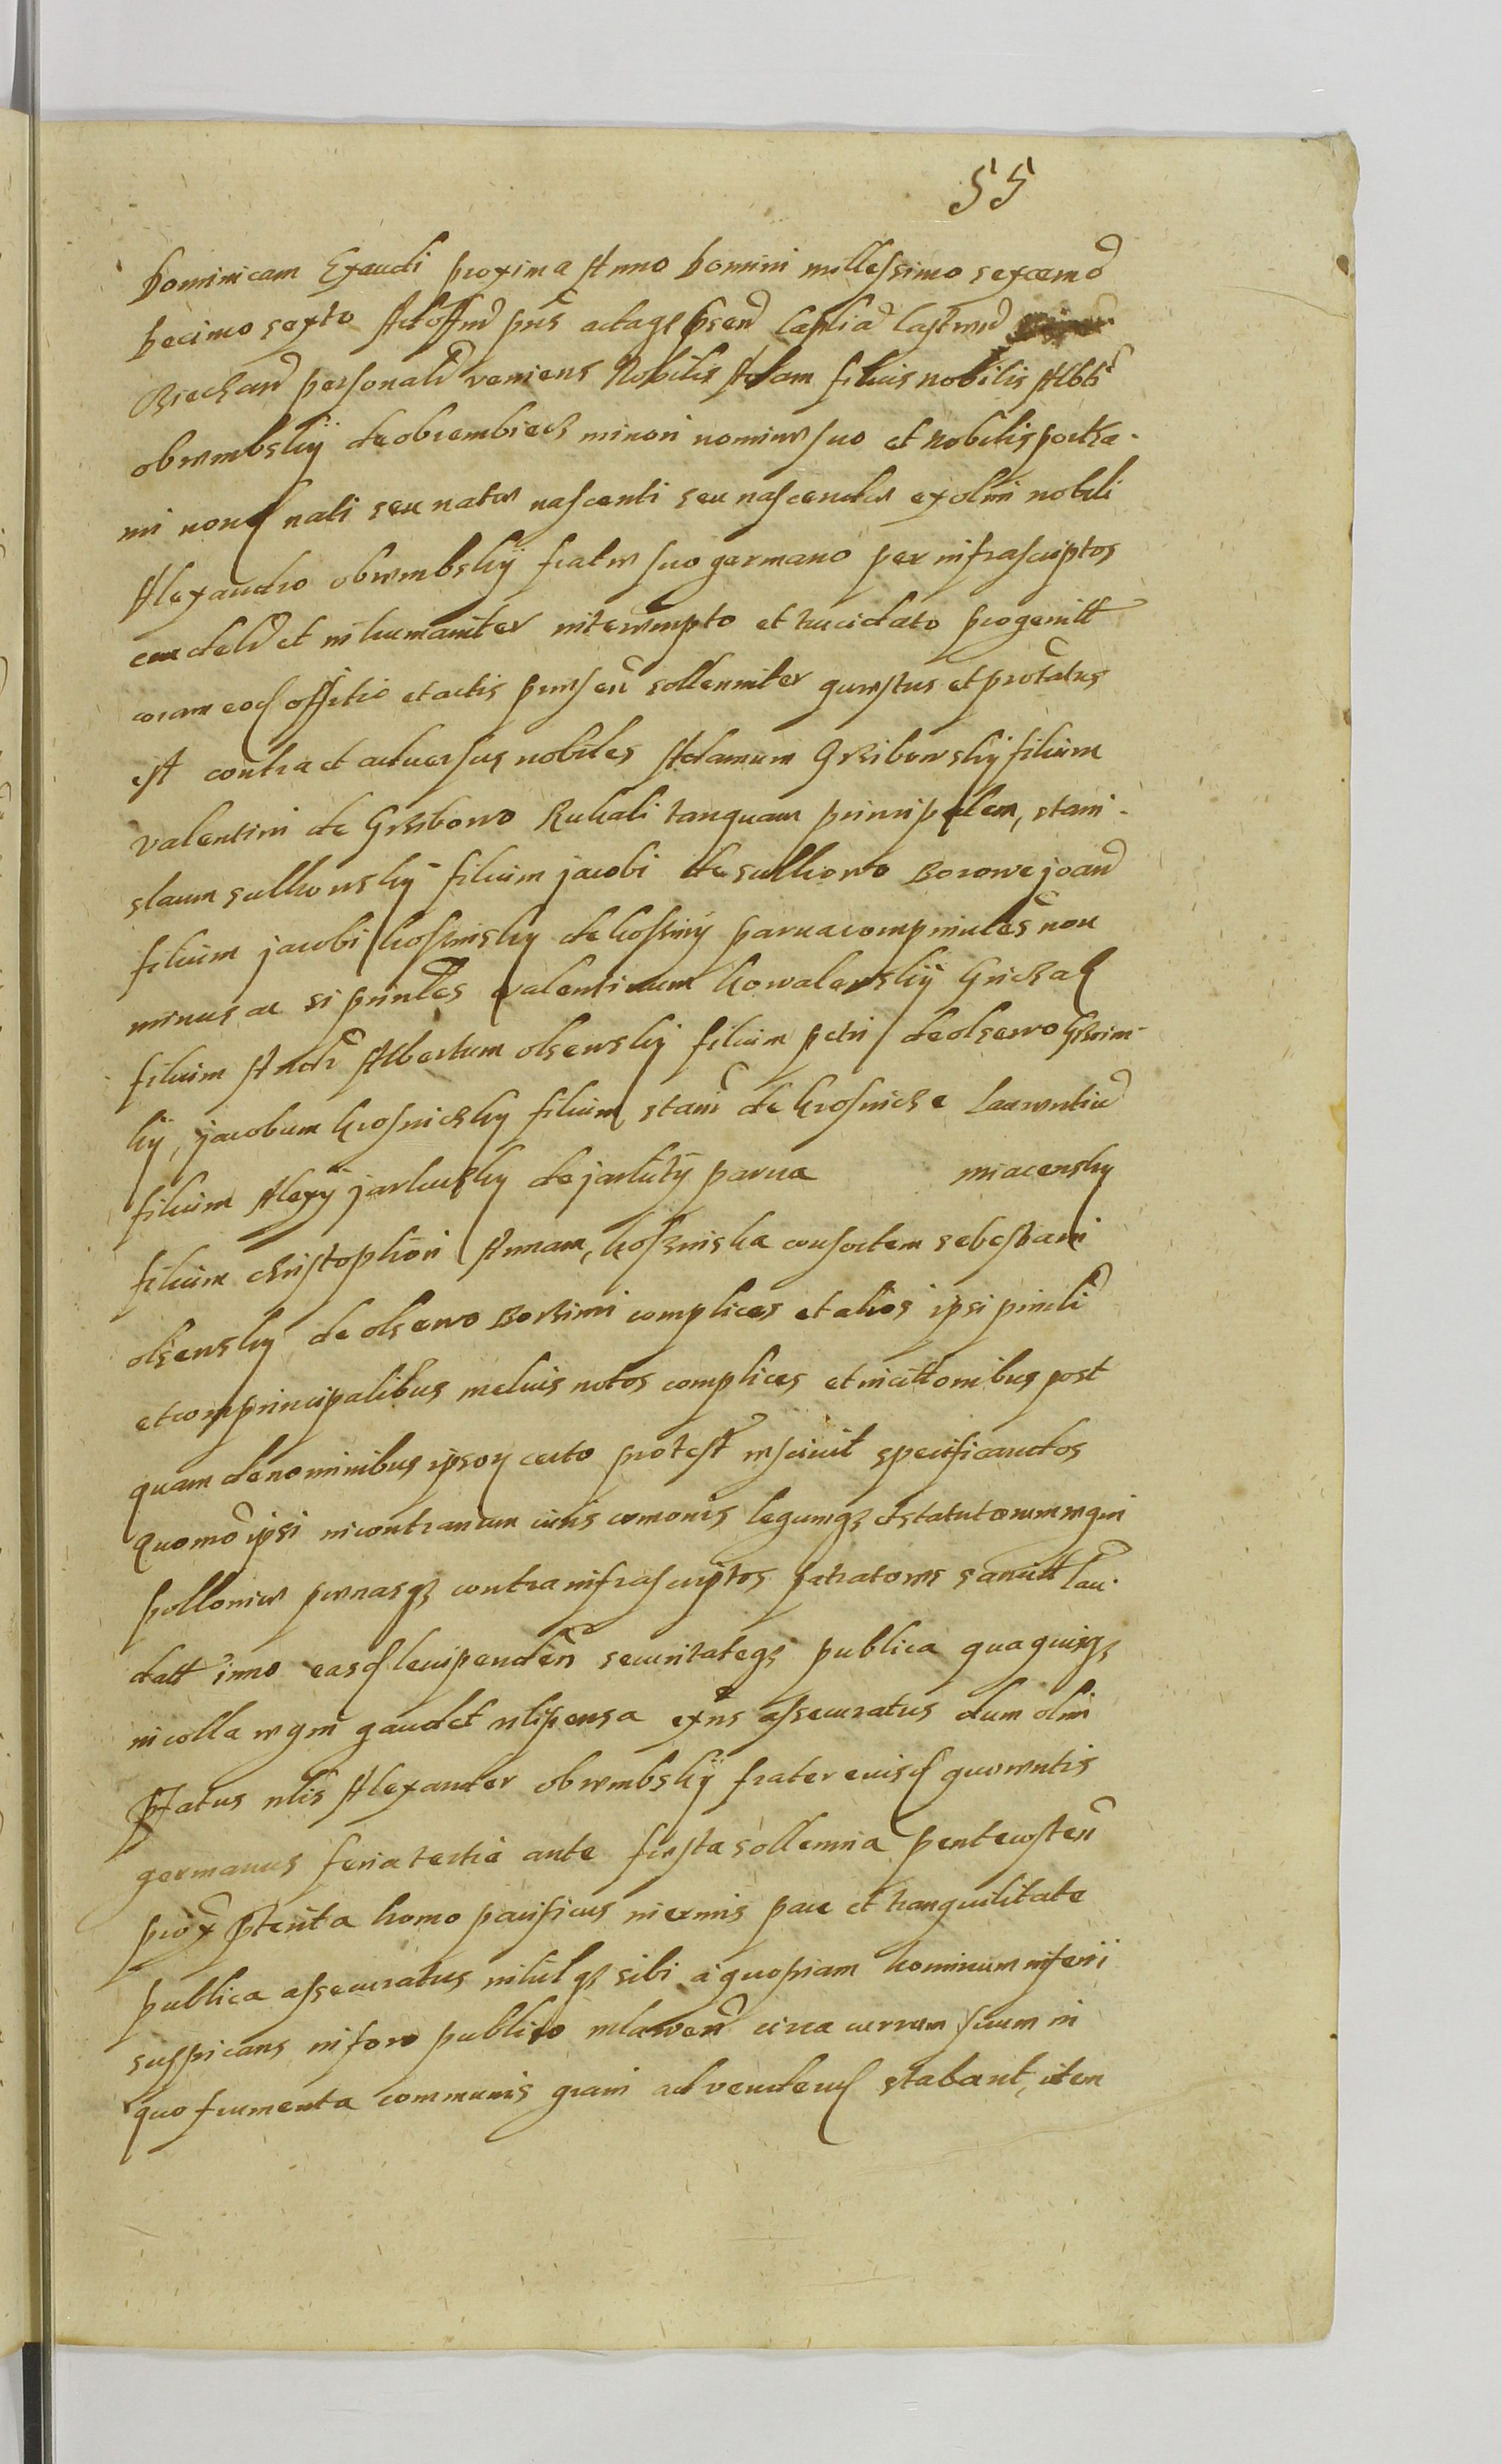 55
Dominicam Exaudi proxima Anno Domini millessimo sexcemo
Decimo sexto Ad offm pns actaqꝫ prsen Caplia Castren
Ciechan personalr veniens Nobilis Adam filius nobilis Alb
obrembskÿ de obrembiecz minori nomine suo et nobilis posthu-
mi nond nati seu natæ nascenti seu nascendæ ex olim nobili
Alexandro obrembskÿ fratre suo germano per infrascriptos
crudelr et inhumaniter interempto et trucidato progenitt
coram eod offitio et actis prnsen sollenniter questus et protatus
est contra et aduersus nobiles Adamum Grzibowskÿ filium
valentini de Grzibowo Rukali tanquam principalem, stani-
slaum sulkowskÿ filium jacobi de sulkowo Borowe joan
filium jacobi kosinsky de kossiny parua comprinles non
minus ac si prinles valentinum kowalewskÿ Gricza
filium Andr Albertum olsewsky filium petri de olsewo Grzim-
kÿ, jacobum krosniczky filium stani de krosnicze Laurentiu
filium Alexÿ jarluthky de jarluty parua miacensky
filium christophori Annam, kosinska consortem sebestiani
olsewsky de olsewo Borzimi complices et alios ipsi prinli
et comprincipalibus melius notos complices et nicittonibus post
quam de nominibus ipsorꝫ certo protest resciuit specificandos
Quomo ipsi in contrarium iuris comonis legumqꝫ et statutorum regni
polloniæ pœnasqꝫ contra infrascriptos patratores sancitt lau-
datt imo easd leuipenden securitateqꝫ publica qua quisqꝫ
incolla regni gaudet vlipensa exns assecuratus dum olim
prfatus nlis Alexander obrembskÿ frater eiusd querentis
germanus feria tertia ante festa sollennia pentecosten
prox prterita homo pacificus inermis pace et tranquilitate
publica assecuratus nihilqꝫ sibi a quopiam hominum inferri
suspicans in foro publico mlawen circa currum suum in
quo frumenta communis grani ad vendend stabant, item